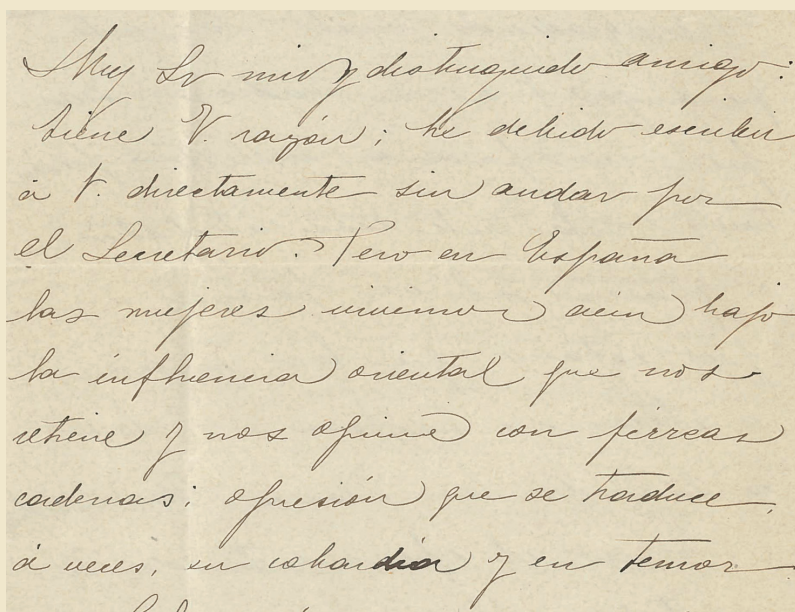 Muy Sr mio y distinguido amigo:
tiene V. razón; he debido escribir
á V. directamente sin andar por
el Secretario. Pero en España
las mujeres vivimos aún bajo
la influencia oriental que nos
retiene y nos oprime con férreas
cadenas; opresión que se traduce,
á veces, en cobardia y en temor